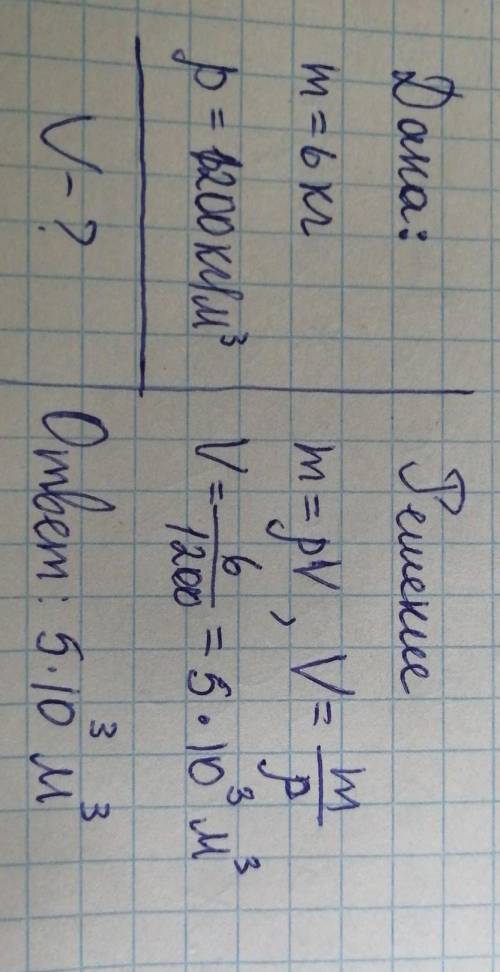 Дана:
m = 6 кг
ρ = 1200 кг/м³
V - ?
Решение
m = ρV, V = m/ρ
V = 6/1200 = 5 · 10³ м³
Ответ: 5 · 10³ м³